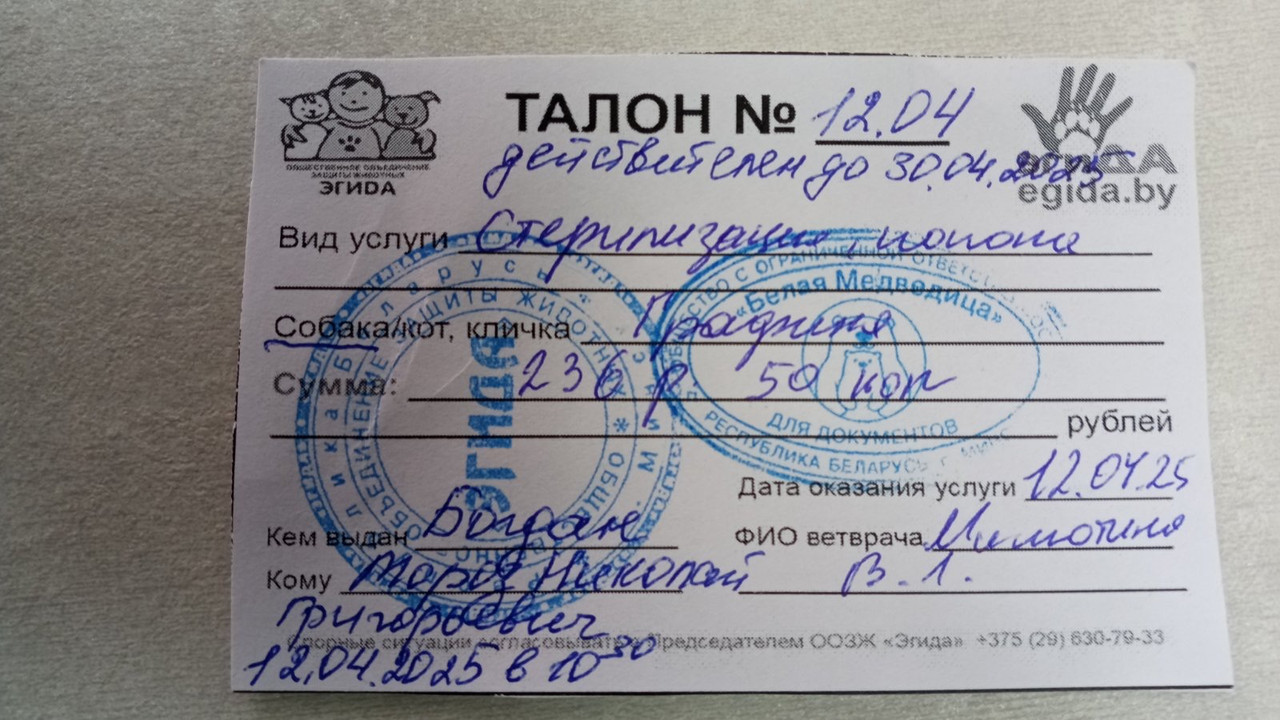 ОБЩЕСТВЕННОЕ ОБЪЕДИНЕНИЕ
ЗАЩИТЫ ЖИВОТНЫХ
ЭГИDА
ТАЛОН № 12.04
действителен до 30.04.2025
egida.by
Вид услуги Стерилизация, попона
Собака/кот, кличка
Сумма: 236 р 50 коп
рублей
Дата оказания услуги 12.04.25
Кем выдан Богдан
ФИО ветврача
В. А.
Кому Николай
Григорьевич
Спорные ситуации согласовывать с Председателем ООЗЖ «Эгида» +375 (29) 630-79-33
12.04.2025 в 10
ОБЪЕДИНЕНИЕ ЗАЩИТЫ ЖИВОТНЫХ
ЭГИDА
ОБЩЕСТВО С ОГРАНИЧЕННОЙ
«Белая Медведица»
ДЛЯ ДОКУМЕНТОВ
РЕСПУБЛИКА БЕЛАРУСЬ